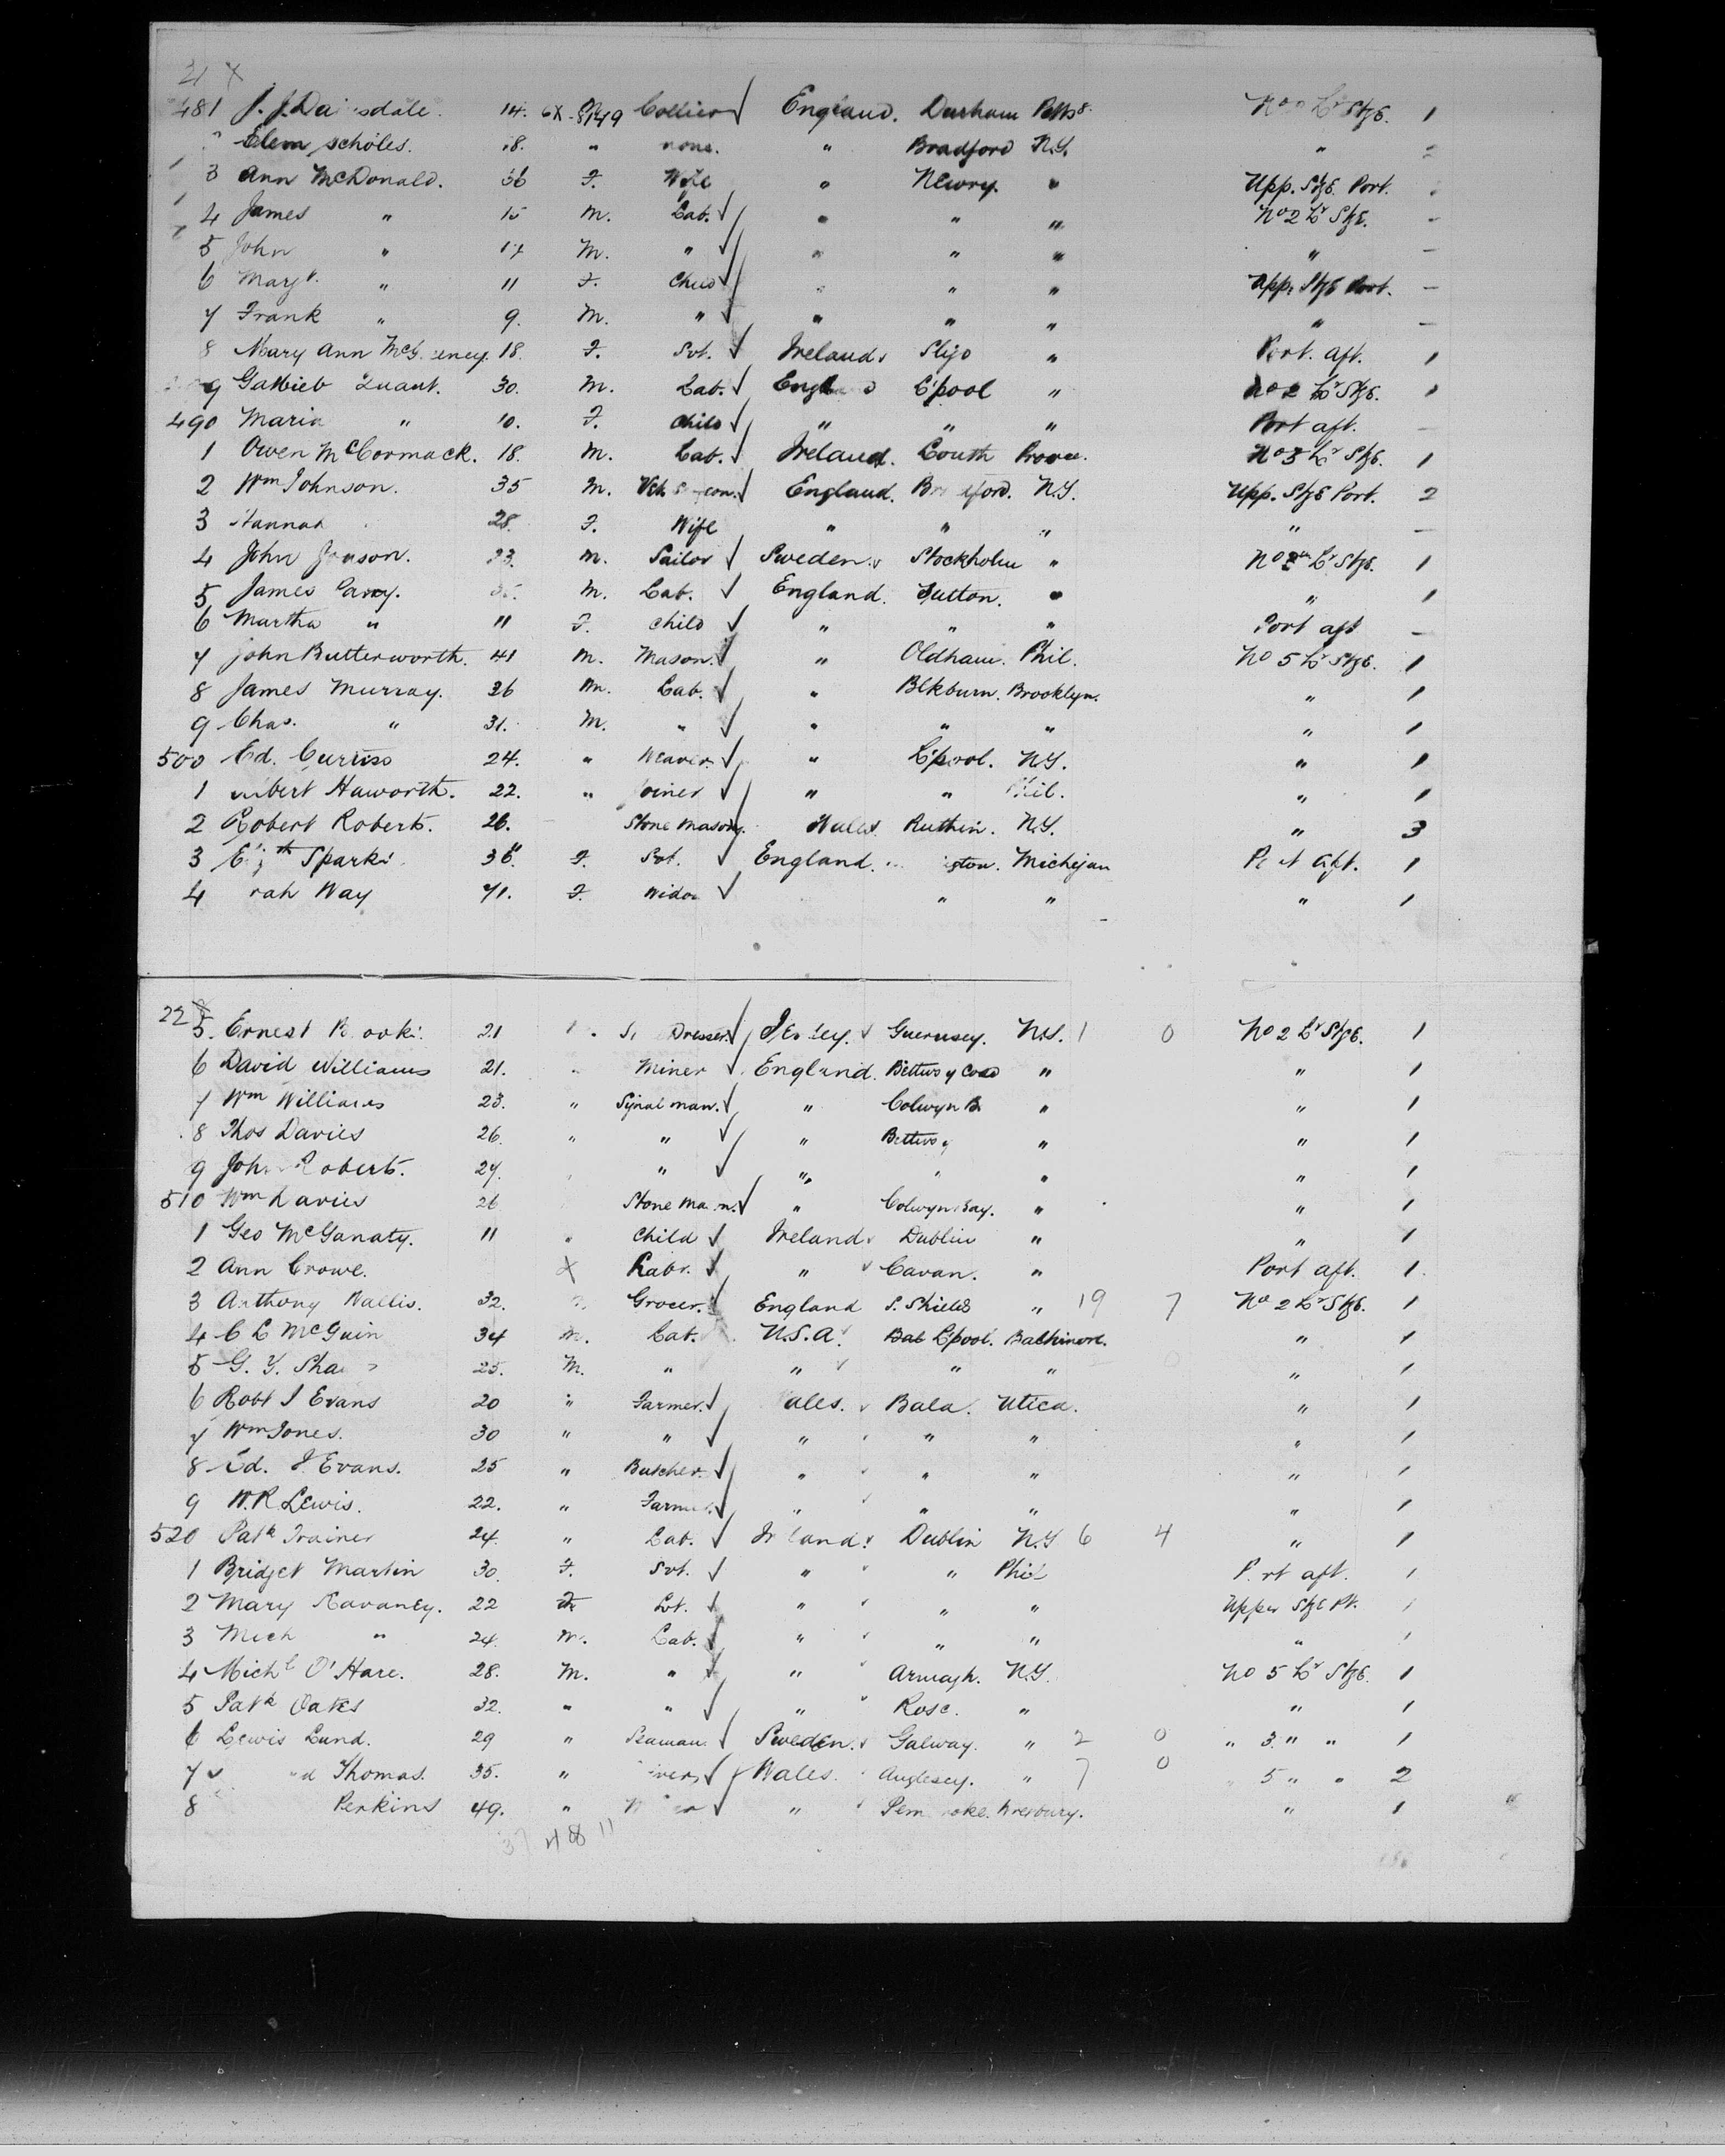 21 X
481 J. J. 14. Collier England. Durham Pitts8. 1
Scholes. none. " Bradford N.Y. "
3 Ann McDonald. 36 F. Wife " Newry. " Upp. Stge. Port.
4 James " 15 M. Lab. " " " No 2 Lr Stge. -
5 John " 17 M. " " " " " -
6 Margt. " 11 F. Child " " " Uppr Stge Port. -
7 Frank " 9. M. " " " " " -
8 Mary Ann 18. F. Svt. Ireland Sligo " Port. aft. 1
9 Gottlieb Quant. 30. M. Lab. L'pool " No 2 Lr Stge. 1
490 Maria " 10. F. Child " " " Port aft. -
1 Owen McCormack. 18. M. Lab. Ireland. Louth No 3 Lr Stge. 1
2 Wm Johnson. 35 M. England. N.Y. Upp. Stge Port. 2
3 Hannah 28. F. Wife " " " " -
4 John 23. M. Sailor Sweden. Stockholm " Lr Stge. 1
5 James M. Lab. England. Sutton. " " 1
6 Martha " 11 F. Child " " " Port aft -
7 John Butterworth. 41 M. Mason. " Oldham. Phil. No 5 Lr Stge. 1
8 James Murray. 26 M. Lab. " Blkburn. Brooklyn. " 1
9 Chas. " 31. M. " " " " " 1
500 Ed. 24. " Weaver. " L'pool. N.Y. " 1
1 Haworth. 22. " Joiner " " Phil. " 1
2 Robert Roberts. 26. Stone Mason. Wales. Ruthin. N.Y. " 3
3 Sparks 36. F. Svt. England. Michigan Port Aft. 1
4 Way 71. F. Widow " " " 1
22 X
5. Ernest 21 Dresser Guernsey. N.Y. 1 0 No 2 Lr Stge. 1
6 David Williams 21. Miner England. Bettws y Coed " " 1
7 Wm Williams 23. " Signal man. " Colwyn B. " " 1
8 Thos Davies 26. " " " Bettws y " " 1
9 John Roberts. 27. " " " " " 1
510 Wm Davies 26 Stone Mason. " Colwyn Bay. " " 1
1 Geo McGanaty. 11 " Child Ireland Dublin " " 1
2 Ann Crowe. X Labr. " Cavan. " Port aft. 1.
3 Anthony Wallis. 32. Grocer. England S. Shields " 19 7 No 2 Lr Stge. 1
4 C L McGuin 34 M. Lab. U.S.A. L'pool. Baltimore. " 1
5 G. Y. 25. M. " " " " " 1
6 Robt J Evans 20 " Farmer. Wales. Bala. Utica. " 1
7 Wm Jones. 30 " " " " " " 1
8 Ed. J Evans. 25 " Butcher. " " " " 1
9 W. R Lewis. 22. " Farmer " " " " 1
520 Patk Trainer 24. " Lab. Ireland. Dublin N.Y 6 4 " 1
1 Bridget Martin 30. F. Svt. " " Phil Port aft. 1
2 Mary Kavaney. 22 F. " " " Upper Stge Pt. 1
3 Mich " 24. M. Lab. " " " " 1
4 Michl O'Hare. 28. M. " " Armagh. N.Y. No 5 Lr Stge. 1
5 Patk Oates 32. " " " Rosc. " " 1
6 Lewis Lund. 29 " Seaman. Sweden. Galway. " 2 0 " 3. " " 1
7 Thomas. 35. " Wales. Anglesey. " 7 0 " 5 " " 2
8 Perkins 49. " " " 1